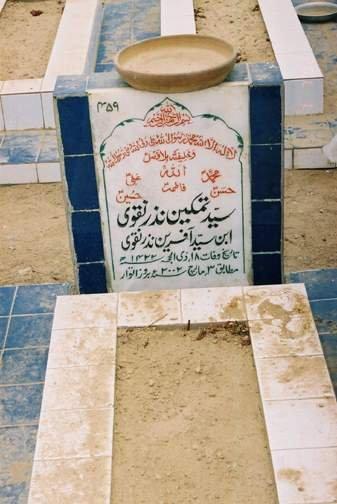 ۴۵۹
اللہ
بسم اللہ الرحمن الرحیم
لا الہ الا اللہ محمد رسول اللہ علی ولی اللہ وصی رسول اللہ
وخلیفتہ بلا فصل
محمدؐ اللہ علیؑ
حسنؑ فاطمہؑ حسینؑ
سید تمکین نذر نقوی
ابن سید آفرین نذر نقوی
تاریخ وفات ۱۸ ذی الحجہ ۱۴۲۲ھ
مطابق ۳ مارچ ۲۰۰۲ء بروز اتوار